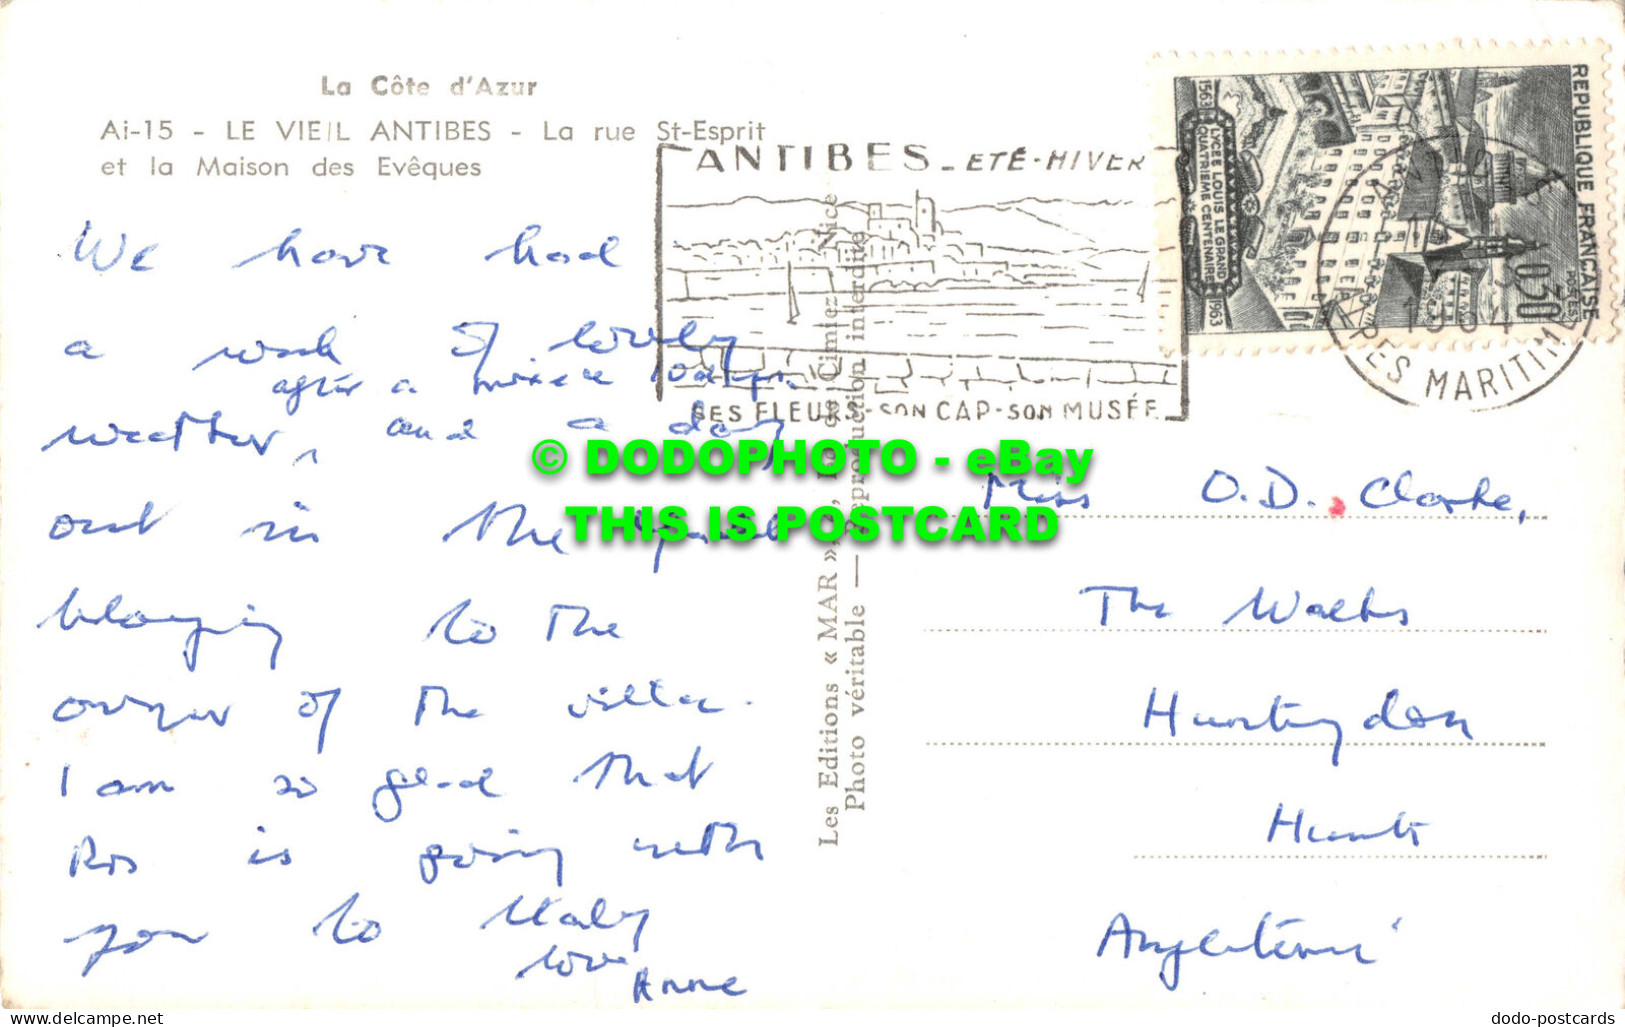 La Côte d'Azur
Ai-15 - LE VIEIL ANTIBES - La rue St-Esprit
et la Maison des Evêques
We have had
a week of lovely
after a
weather, and a day
out in the
belonging to the
owner of the villa.
I am so glad that
Ros is going with
you to Italy
love
Anne
ANTIBES - ETÉ - HIVER
SES FLEURS - SON CAP - SON MUSÉE
REPUBLIQUE FRANÇAISE
POSTES
0,30
1563 LYCEE LOUIS LE GRAND 1963
QUATRIEME CENTENAIRE
1964
MARITIMES
Les Editions « MAR », Nice
Photo véritable — Reproduction interdite
© DODOPHOTO - eBay
THIS IS POSTCARD
Miss O.D. Clarke,
The Walks
Huntingdon
Hunts
Angleterre
delcampe.net
dodo-postcards